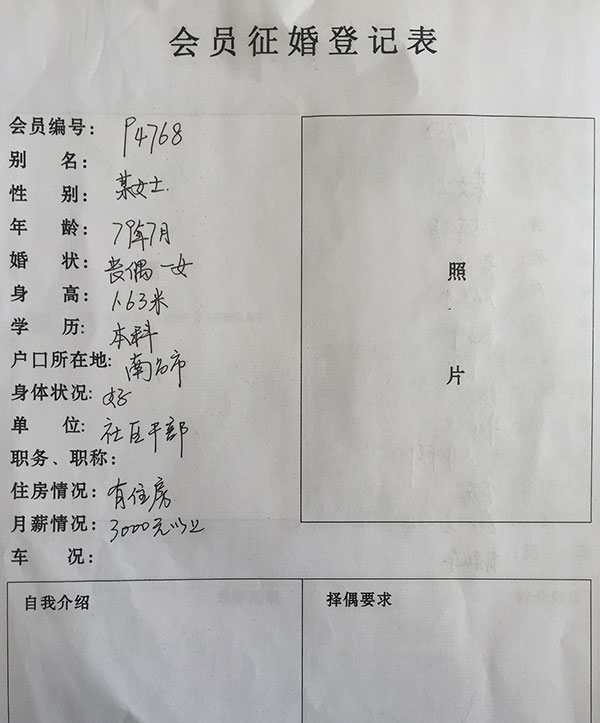 会员征婚登记表
会员编号: P4768
别 名:
性 别: 某女士.
年 龄: 79年7月
婚 状: 丧偶 一女
身 高: 1.63米
学 历: 本科
户口所在地: 南昌市
身体状况: 好
单 位: 社区干部
职务、职称:
住房情况: 有住房
月薪情况: 3000元以上
车 况:
照
片
自我介绍
择偶要求